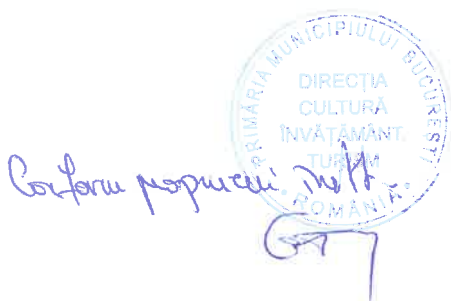 PRIMĂRIA MUNICIPIULUI BUCUREȘTI
DIRECȚIA
CULTURĂ
ÎNVĂȚĂMÂNT
TURISM
* ROMÂNIA *
Conform propunerii